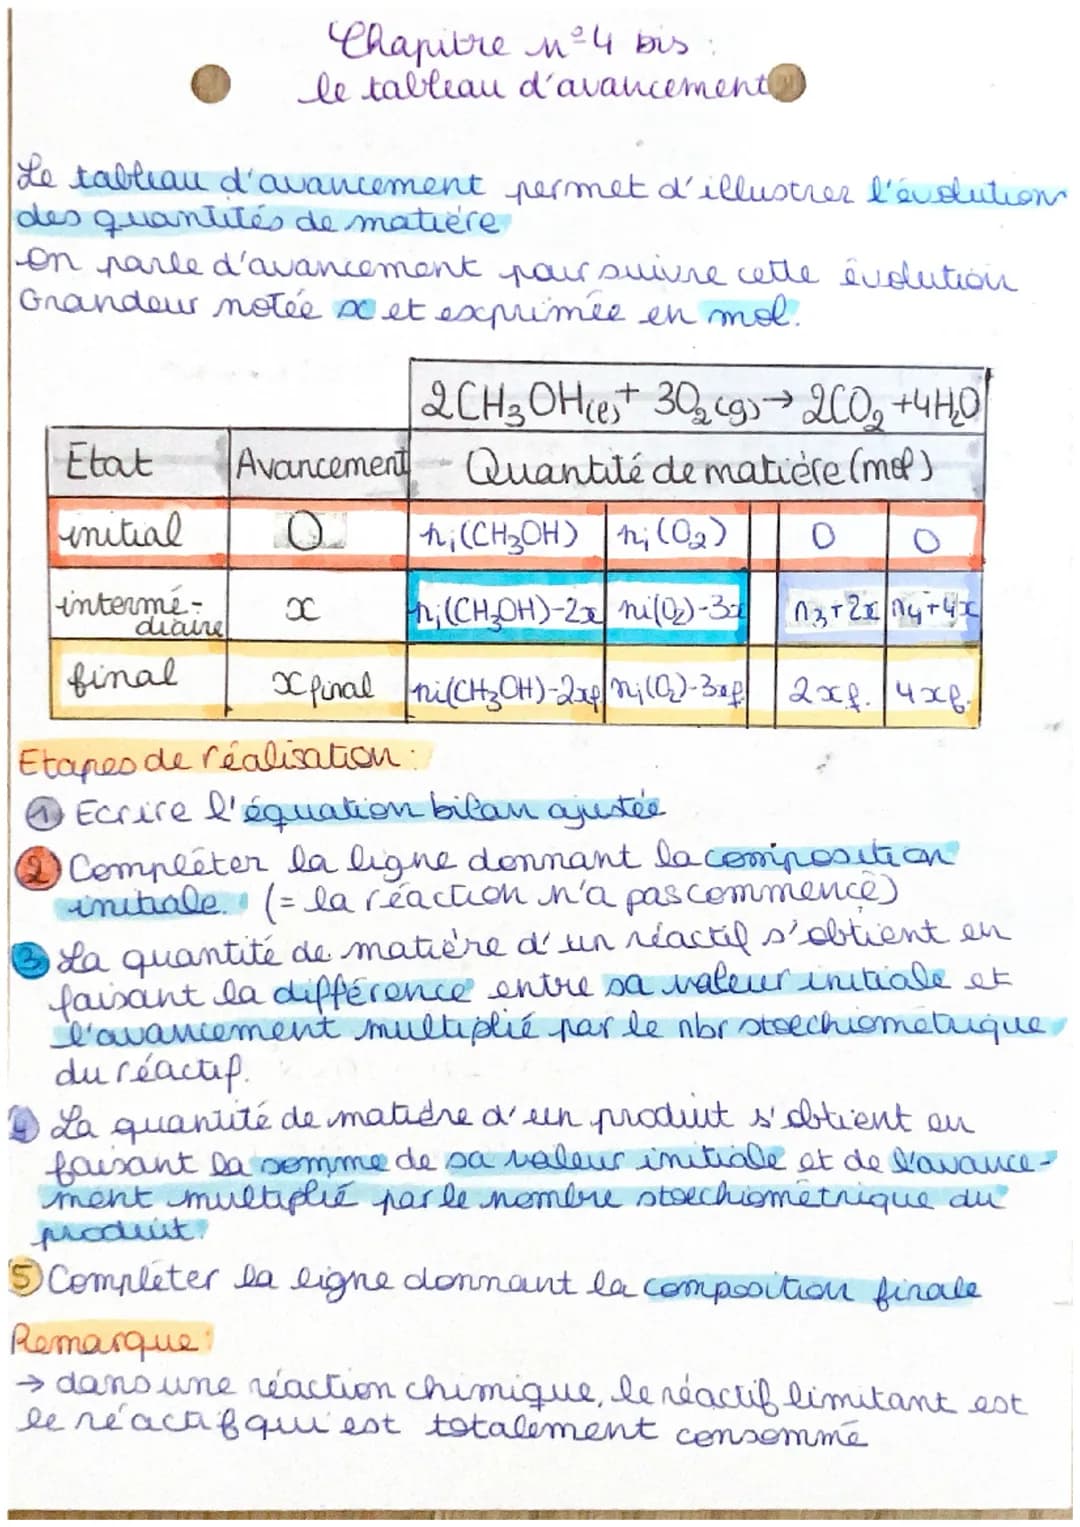 Chapitre n°4 bis :
le tableau d'avancement
Le tableau d'avancement permet d'illustrer l'évolution
des quantités de matière
On parle d'avancement pour suivre cette évolution
Grandeur notée x et exprimée en mol.
2CH₃OH(l) + 3O₂(g) → 2CO₂ + 4H₂O
Etat Avancement Quantité de matière (mol)
initial 0 nᵢ(CH₃OH) nᵢ(O₂) 0 0
intermé-
diaire x nᵢ(CH₃OH)-2x ni(O₂)-3x n₃+2x n₄+4x
final x final ni(CH₃OH)-2xf nᵢ(O₂)-3xf 2xf. 4xf.
Etapes de réalisation :
1 Ecrire l'équation bilan ajustée
2 Compléter la ligne donnant la composition
initiale. (= la réaction n'a pas commencé)
3 La quantité de matière d'un réactif s'obtient en
faisant la différence entre sa valeur initiale et
l'avancement multiplié par le nbr stoechiométrique
du réactif.
4 La quantité de matière d'un produit s'obtient en
faisant la somme de sa valeur initiale et de l'avance-
ment multiplié par le nombre stoechiométrique du
produit.
5 Compléter la ligne donnant la composition finale
Remarque :
→ dans une réaction chimique, le réactif limitant est
le réactif qui est totalement consommé